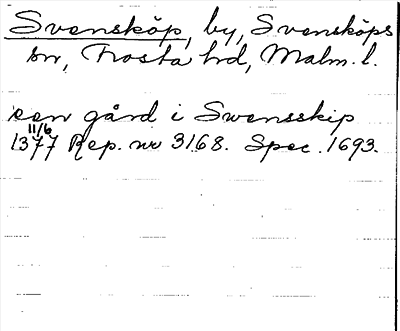 Svensköp, by, Svensköps
sn, Frosta hd, Malm. l.
een gård i Swensskip
1377 11/6 Rep. nr 3168. Spec. 1693.